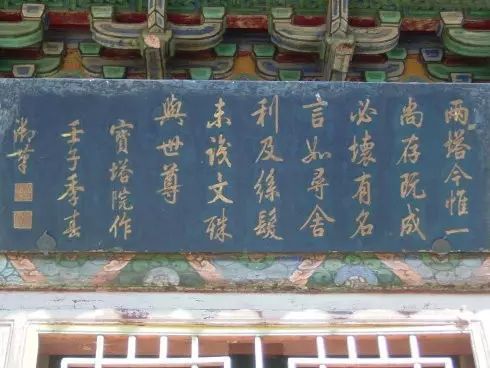 兩塔今惟一
尚存既成
必壞有名
言如尋舍
利及絲髮
未文殊
與世尊
寶塔院作
壬子季春
御筆